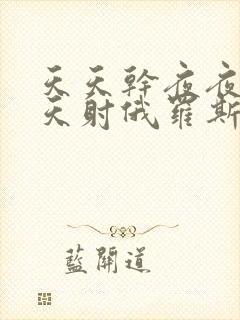 天天幹夜夜
天射俄羅斯
藍開道